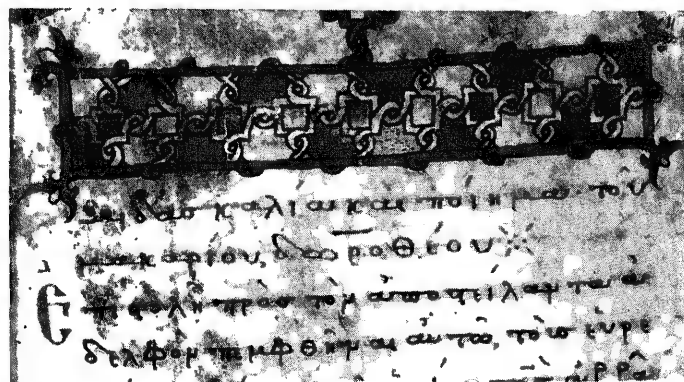 διδασκαλίαι και ποίημα τοῦ
μακαρίου δωροθέου
Ἐπιστολὴ πρὸς τὸν ἀποστείλαντα ἀ
δελφὸν πεμφθῆναι αὐτῶ, τοὺς εὑρε